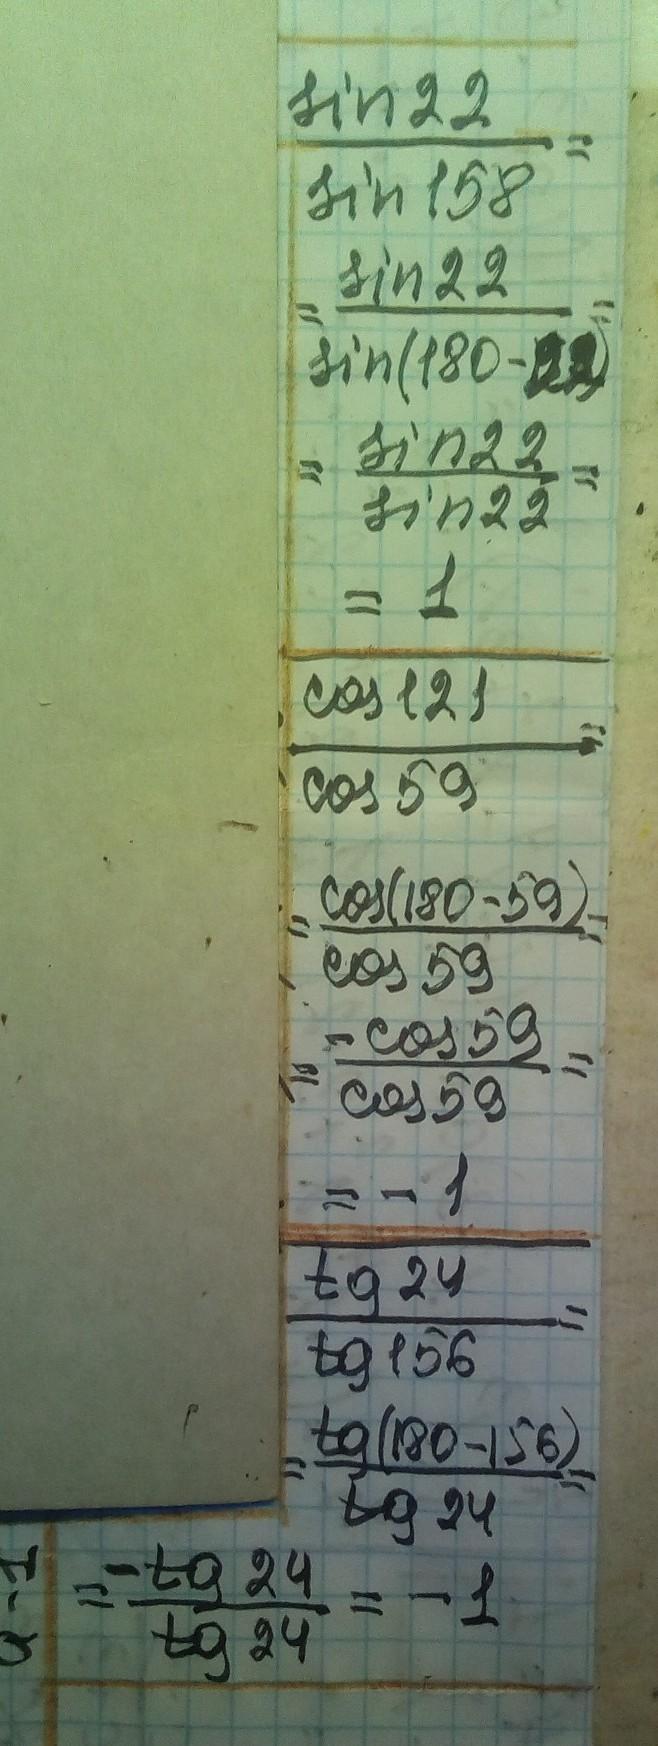 sin22
=
sin158
sin22
= =
sin(180-22)
= sin22 =
sin22
= 1
cos121
=
cos59
= cos(180-59) =
cos59
= -cos59 =
cos59
= -1
tg24
=
tg156
= tg(180-156) =
tg24
= -tg24 = -1
tg24